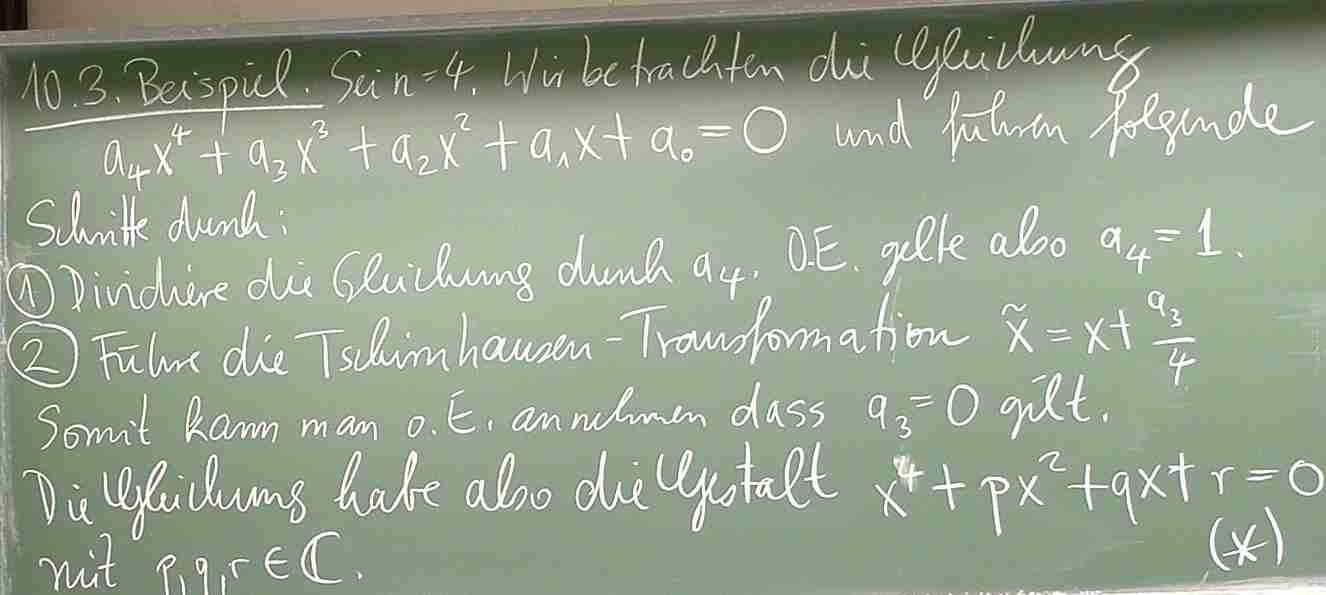 10.3. Beispiel. Sei n=4. Wir betrachten die Gleichung
a₄x⁴ + a₃x³ + a₂x² + a₁x + a₀ = 0 und führen folgende
Schritte durch:
① Dividiere die Gleichung durch a₄. O.E. gelte also a₄ = 1.
② Führe die Tschirnhausen-Transformation x̃ = x + a₃/4
Somit kann man o.E. annehmen dass a₃ = 0 gilt.
Die Gleichung habe also die Gestalt x⁴ + px² + qx + r = 0
mit p,q,r ∈ ℂ. (*)